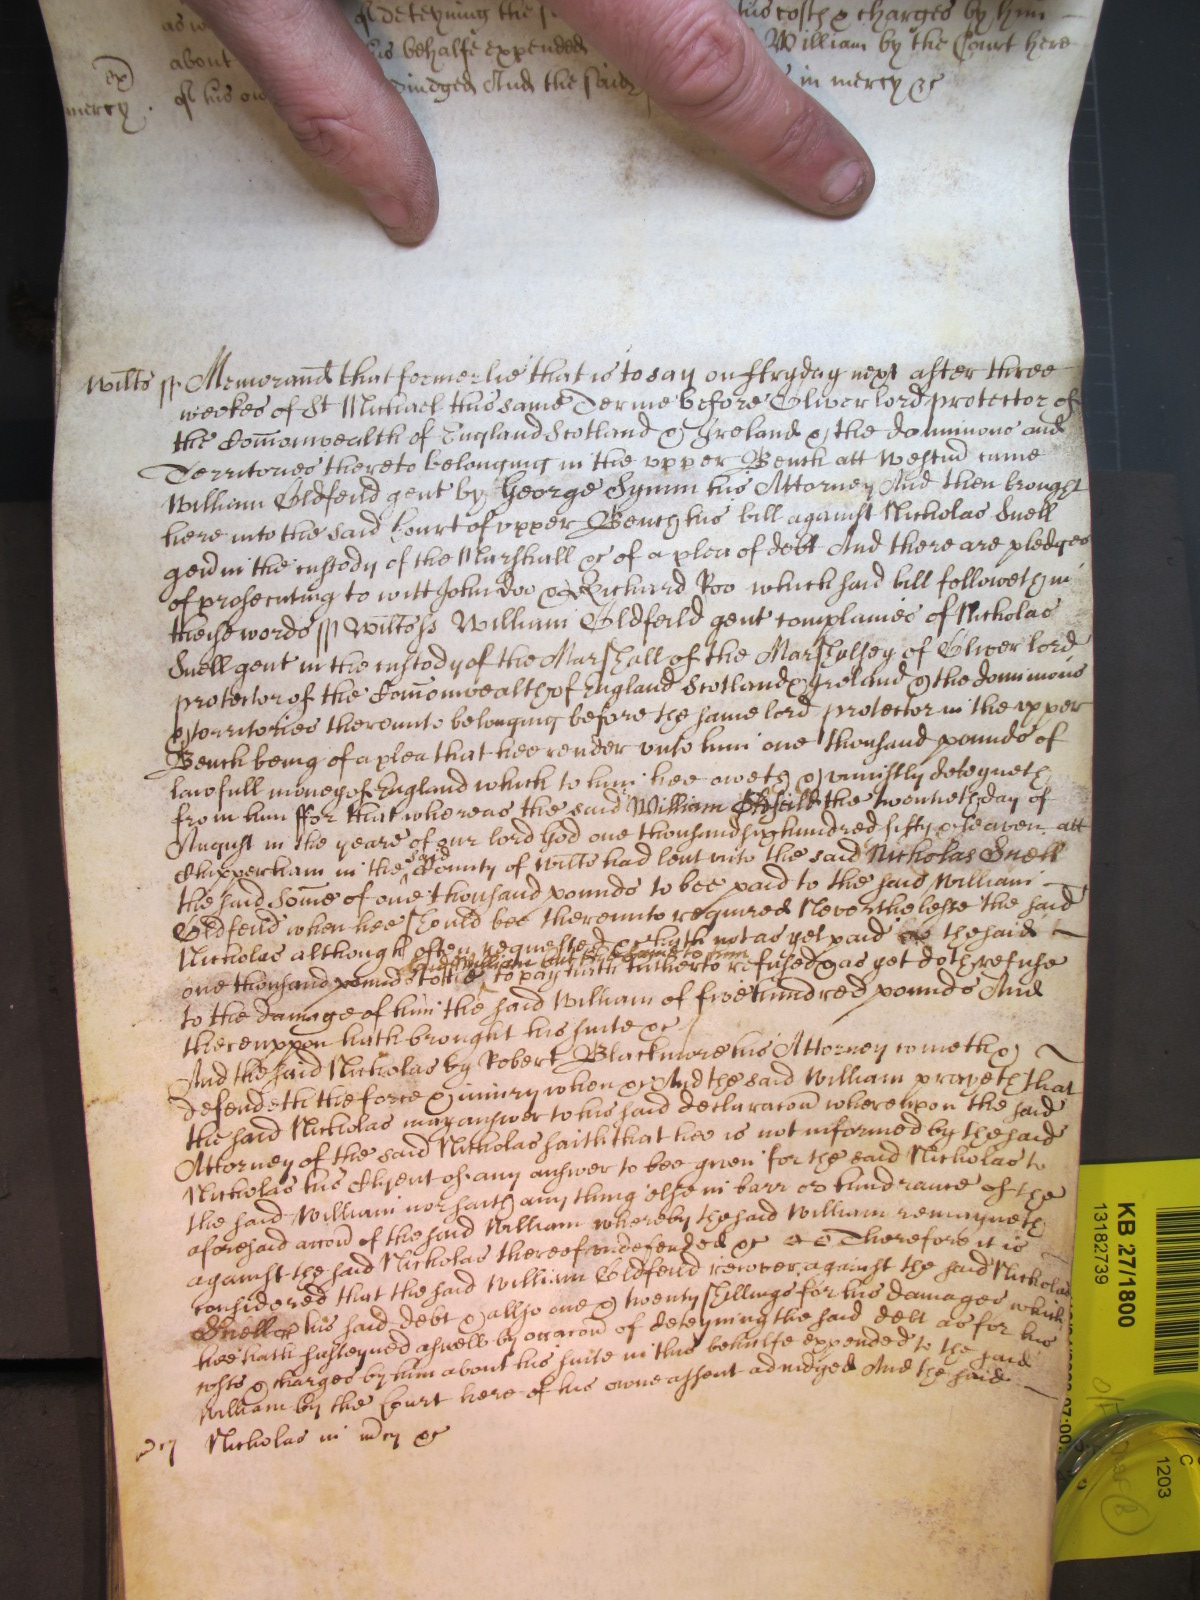 of deteyning the costs & charges by him
about his behalfe expended William by the Court here
ex
mercy . of his adiudged And the said in mercy &c
Wilts ss Memorand that formerlie that is to say on ffryday next after three
weekes of St Michael this same Terme before Oliver lord protector of
the Comonwealth of England Scotland & Ireland & the dominions and
Territories thereto belonging in the upper Bench att Westm came
William Oldfeild gent by George Symm his Attorney And then brought
here into the said Court of upper Bench his bill against Nicholas Snell
gent in the custody of the Marshall &c of a plea of debt And there are pledges
of prosecuting to witt John Doo & Richard Roo which said bill followeth in
theise words ss Wilts ss William Oldfeild gent complaines of Nicholas
Snell gent in the custody of the Marshall of the Marshalsey of Oliver lord
protector of the Comonwealth of England Scotland & Ireland & the dominions
& territories thereunto belonging before the same lord protector in the upper
Bench being of a plea that hee render unto him one thousand pounds of
lawfull money of England which to him hee oweth & uniustly deteyneth
from him ffor that whereas the said William Oldfeild the twentieth day of
August in the yeare of our lord God one thousand six hundred fifty & seaven att
Chippenham in the said County of Wilts had lent unto the said Nicholas Snell
the said some of one thousand pounds to bee paid to the said William
Oldfeild when hee should bee thereunto required Neverthelesse the said
Nicholas although often requested &c hath not as yet paid the said
said William but the same to him
one thousand pounds to the to pay hath hitherto refused & as yet doth refuse
to the damage of him the said William of five hundred pounds And
thereuppon hath brought his suite &c
And the said Nicholas by Robert Blackmore his Attorney cometh &
defendeth the force & iniury when &c And the said William prayeth that
the said Nicholas may answer to his said declaracon whereupon the said
Attorney of the said Nicholas saith that hee is not informed by the said
Nicholas his Clyent of any answer to bee given for the said Nicholas to
the said William nor saith any thing else in barr or hindrance of the
aforesaid accon of the said William whereby the said William remayneth
against the said Nicholas thereof undefended &c Therefore it is
considered that the said William Oldfeild recover against the said Nicholas
Snell his said debt & allso one & twenty shillings for his damages which
hee hath susteyned aswell by occacon of deteyning the said debt as for his
costs & charges by him about his suite in this behalfe expended to the said
William by the Court here of his owne assent adiudged And the said
mcy Nicholas in mcy &c
KB 27/1800
13182739
07:00
1203
C